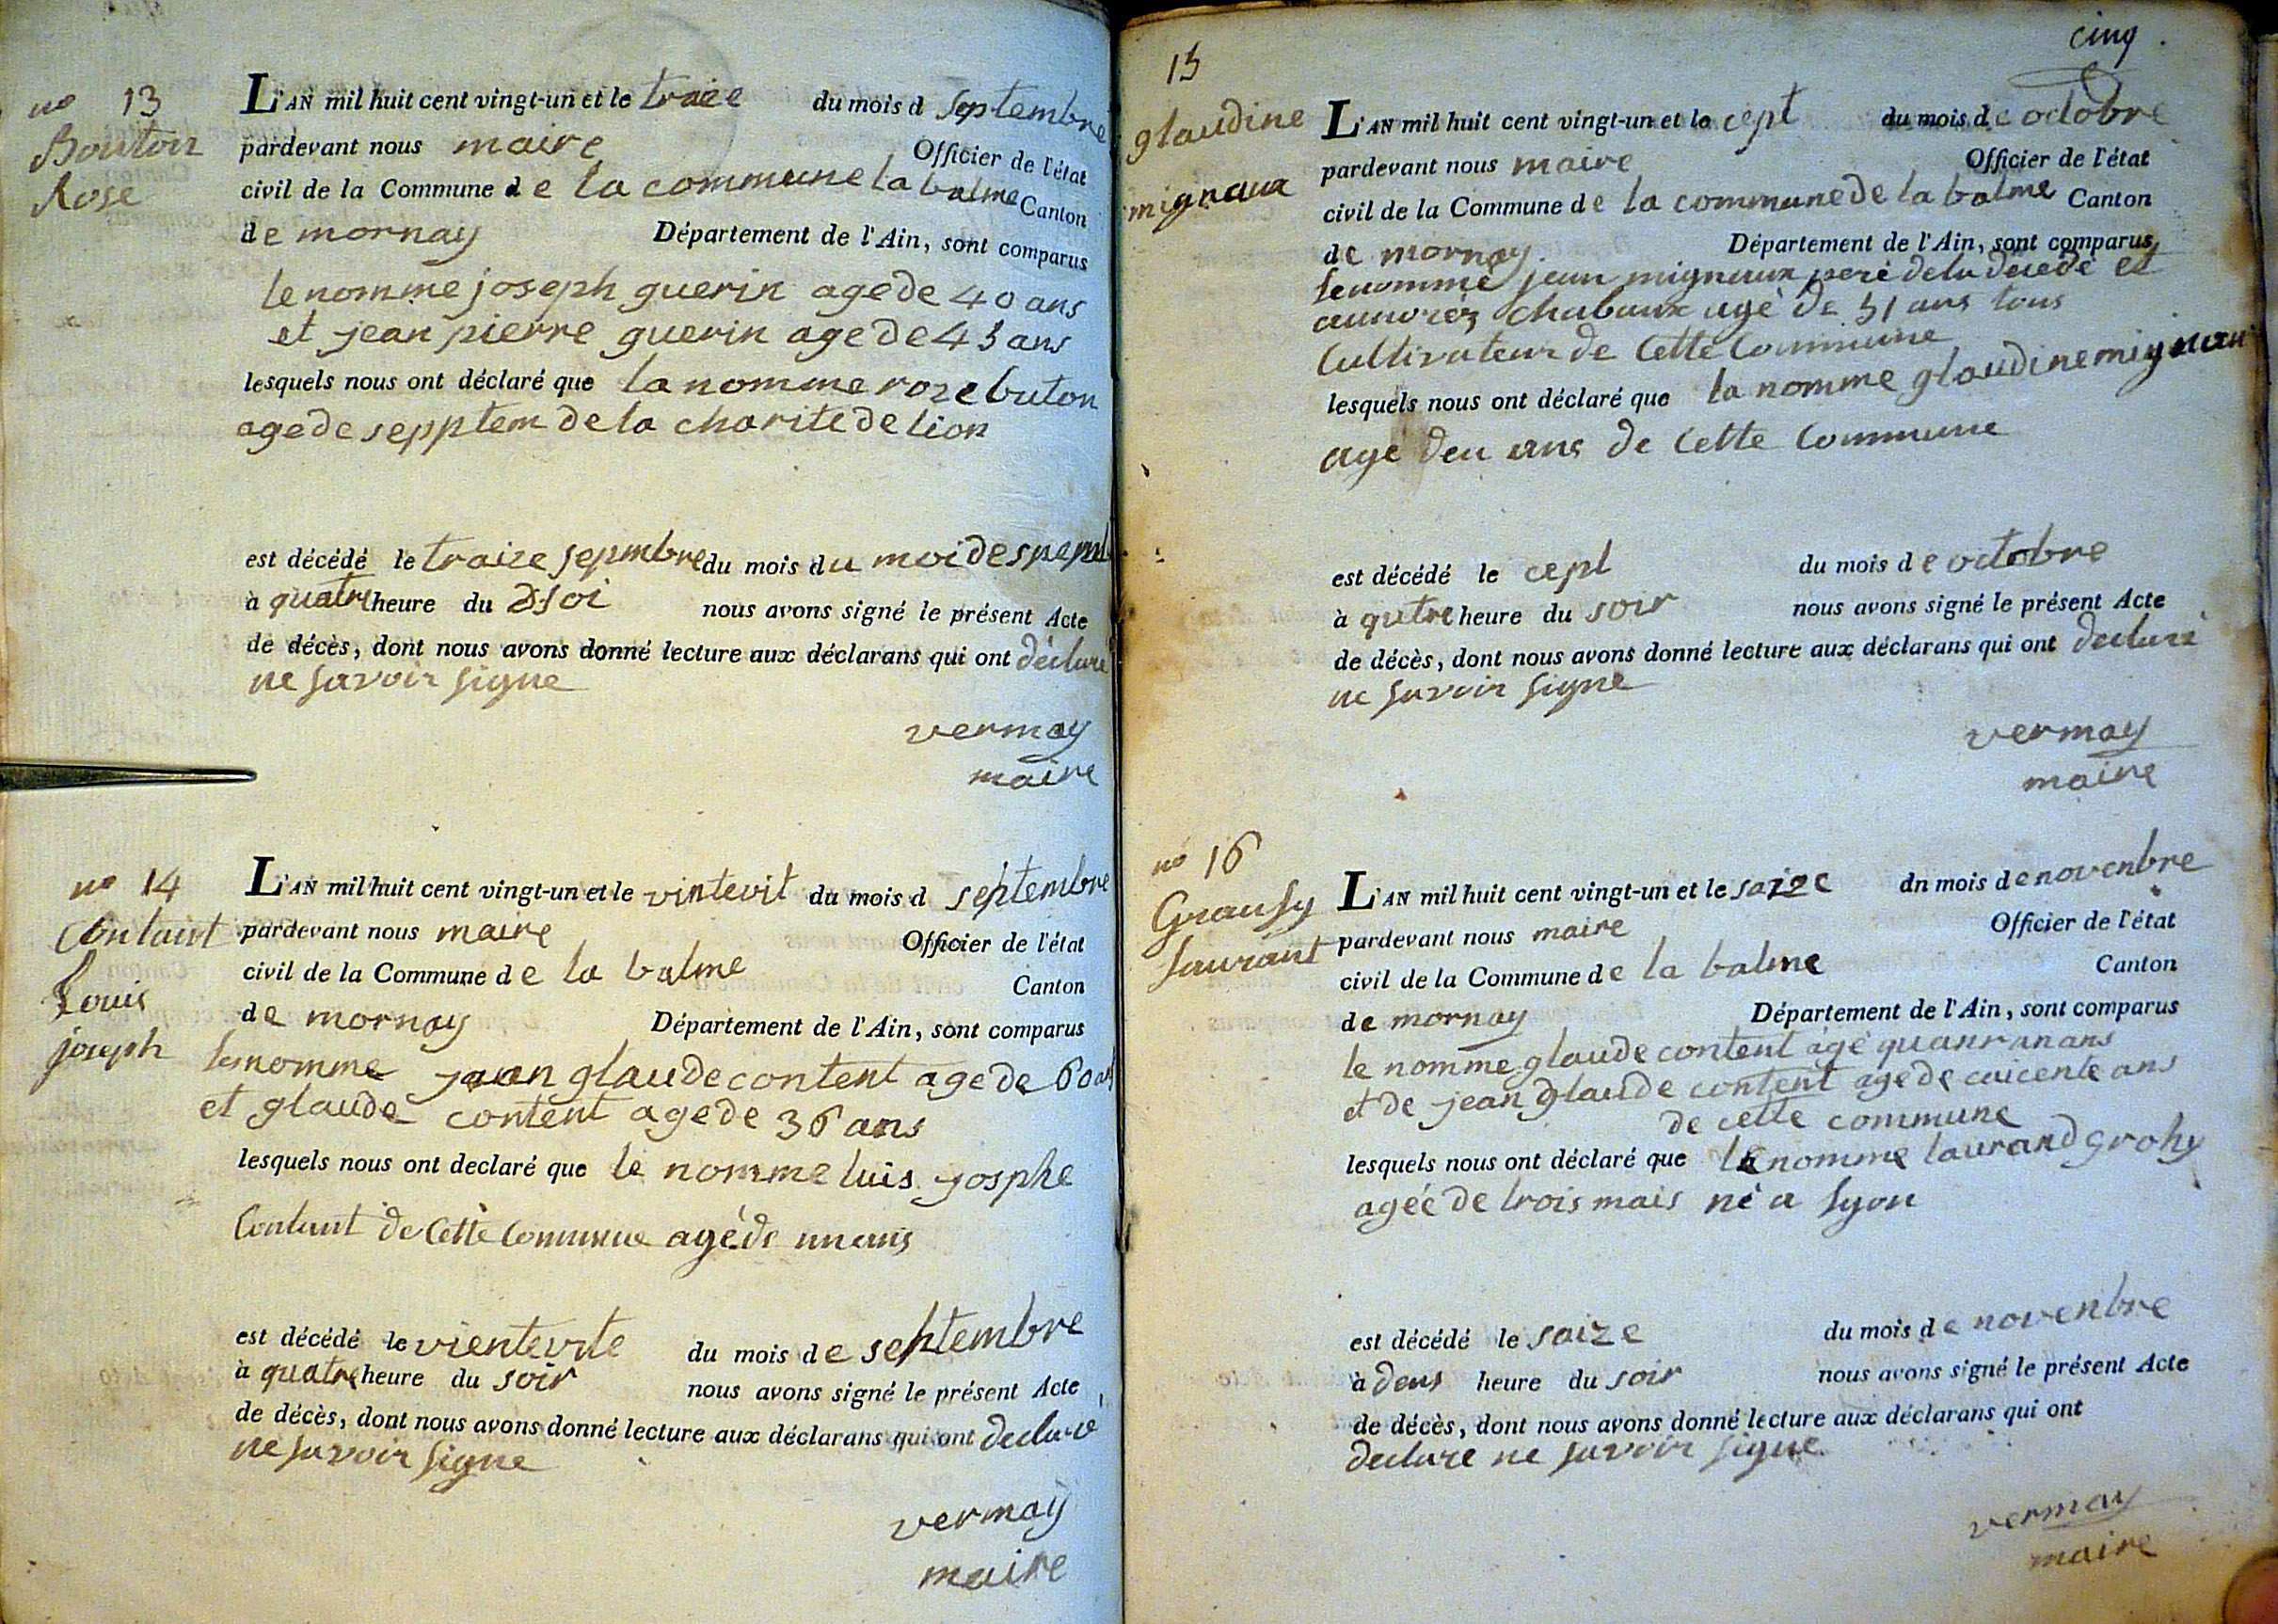 no 13
Bouton
Rose
L'AN mil huit cent vingt-un et le traize du mois d septembre
pardevant nous maire Officier de l'état
civil de la Commune de la commune la balme Canton
de mornay Département de l'Ain, sont comparus
le nomme joseph guerin age de 40 ans
et jean pierre guerin age de 45 ans
lesquels nous ont déclaré que la nomme roze buton
age de sepptem de la charite de lion
est décédé le traize sepmbre du mois du moi de
à quatre heure du soi nous avons signé le présent Acte
de décès, dont nous avons donné lecture aux déclarans qui ont déclaré
ne savoir signe
vermay
maire
no 14
Contant
Louis
joseph
L'AN mil huit cent vingt-un et le vintevit du mois d septembre
pardevant nous maire Officier de l'état
civil de la Commune de la balme Canton
de mornay Département de l'Ain, sont comparus
le nomme jean glaude content age de 60 ans
et glaude content age de 36 ans
lesquels nous ont declaré que le nomme luis josphe
Contant de Cette Commune agé de un ans
est décédé le vientevite du mois de sehtembre
à quatre heure du soir nous avons signé le présent Acte
de décès, dont nous avons donné lecture aux déclarans qui ont declaré
ne savoir signe
vermay
maire
cinq
15
glaudine
mignaux
L'AN mil huit cent vingt-un et le cept du mois de octobre
pardevant nous maire Officier de l'état
civil de la Commune de la commune de la balme Canton
de mornay Département de l'Ain, sont comparus
le nommé jean mignaux peré de la decedé et
chabaux agé de 51 ans tous
Cultivateur de Cette Commune
lesquels nous ont déclaré que la nomme glaudine mignaux
agé deu ans de Cette Commune
est décédé le cept du mois de octobre
à qutre heure du soir nous avons signé le présent Acte
de décès, dont nous avons donné lecture aux déclarans qui ont declaré
ne savoir signe
vermay
maire
no 16
Gransy
Laurant
L'AN mil huit cent vingt-un et le saize dn mois de novenbre
pardevant nous maire Officier de l'état
civil de la Commune de la balme Canton
de mornay Département de l'Ain, sont comparus
le nomme glaude content agé quanr un ans
et de jean glaude content age de caicente ans
de cette commune
lesquels nous ont déclaré que le nomme laurand grohy
agée de trois mais né a lyon
est décédé le saize du mois de novenbre
à deus heure du soir nous avons signé le présent Acte
de décès, dont nous avons donné lecture aux déclarans qui ont
declare ne savoir signe
vermay
maire